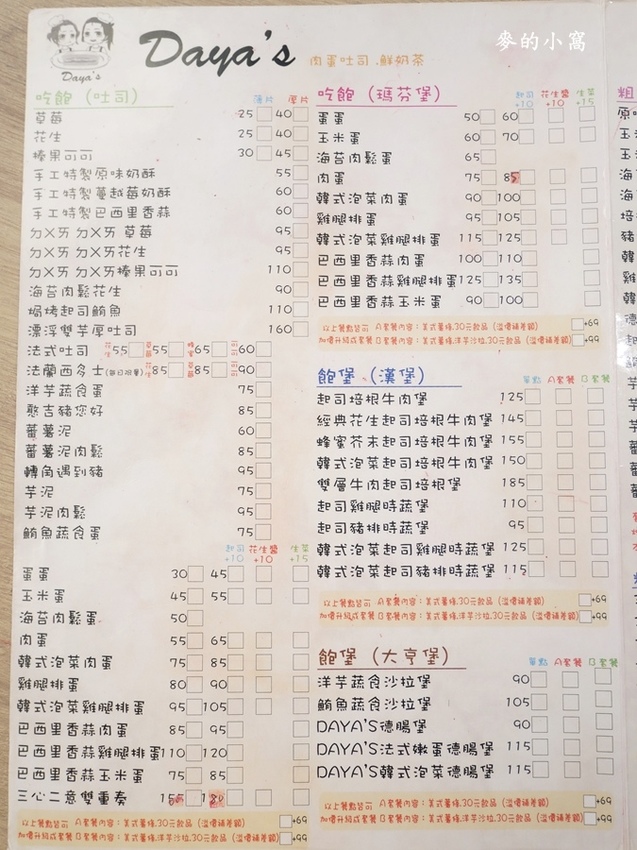 Daya's
Daya's
肉蛋吐司.鮮奶茶
麥的小窩
吃飽（吐司）
薄片 厚片
草莓 25 40
花生 25 40
榛果可可 30 45
手工特製原味奶酥 55
手工特製蔓越莓奶酥 60
手工特製巴西里香蒜 60
ㄉㄨㄞ ㄉㄨㄞ 草莓 95
ㄉㄨㄞ ㄉㄨㄞ花生 95
ㄉㄨㄞ ㄉㄨㄞ榛果可可 110
海苔肉鬆花生 90
焗烤起司鮪魚 110
漂浮雙芋厚吐司 160
法式吐司 花生55 草莓55 蜂蜜65 60
法蘭西多士(每日限量) 花生85 草莓85 90
洋芋蔬食蛋 75
憨吉豬您好 85
蕃薯泥 60
蕃薯泥肉鬆 85
轉角遇到豬 95
芋泥 75
芋泥肉鬆 95
鮪魚蔬食蛋 75
起司+10 花生醬+10 生菜+15
蛋蛋 30 45
玉米蛋 45 55
海苔肉鬆蛋 50
肉蛋 55 65
韓式泡菜肉蛋 75 85
雞腿排蛋 80 90
韓式泡菜雞腿排蛋 95 105
巴西里香蒜肉蛋 85 95
巴西里香蒜雞腿排蛋 110 120
巴西里香蒜玉米蛋 75 85
三心二意雙重奏
以上餐點皆可 A套餐內容:美式薯條.30元飲品 (溢價補差額) +69
加價升級成套餐 B套餐內容:美式薯條.洋芋沙拉.30元飲品 (溢價補差額) +99
吃飽（瑪芬堡）
起司+10 花生醬+10 生菜+15
蛋蛋 50 60
玉米蛋 60 70
海苔肉鬆蛋 65
肉蛋 75 85
韓式泡菜肉蛋 90 100
雞腿排蛋 95 105
韓式泡菜雞腿排蛋 115 125
巴西里香蒜肉蛋 100 110
巴西里香蒜雞腿排蛋 125 135
巴西里香蒜玉米蛋 90 100
以上餐點皆可 A套餐內容:美式薯條.30元飲品 (溢價補差額) +69
加價升級成套餐 B套餐內容:美式薯條.洋芋沙拉.30元飲品 (溢價補差額) +99
飽堡（漢堡）
單點 A套餐 B套餐
起司培根牛肉堡 125
經典花生起司培根牛肉堡 145
蜂蜜芥末起司培根牛肉堡 155
韓式泡菜起司培根牛肉堡 150
雙層牛肉起司培根堡 185
起司雞腿時蔬堡 110
起司豬排時蔬堡 95
韓式泡菜起司雞腿時蔬堡 125
韓式泡菜起司豬排時蔬堡 115
以上餐點皆可 A套餐內容:美式薯條.30元飲品 (溢價補差額) +69
加價升級成套餐 B套餐內容:美式薯條.洋芋沙拉.30元飲品 (溢價補差額) +99
飽堡（大亨堡）
單點 A套餐 B套餐
洋芋蔬食沙拉堡 90
鮪魚蔬食沙拉堡 105
DAYA'S德腸堡 90
DAYA'S法式嫩蛋德腸堡 115
DAYA'S韓式泡菜德腸堡 115
以上餐點皆可 A套餐內容:美式薯條.30元飲品 (溢價補差額) +69
加價升級成套餐 B套餐內容:美式薯條.洋芋沙拉.30元飲品 (溢價補差額) +99